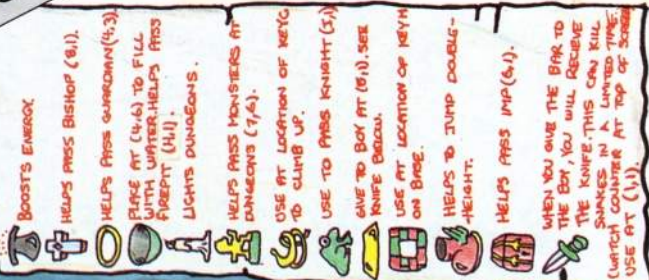 BOOSTS ENERGY.
HELPS PASS BISHOP (8,1).
HELPS PASS GUARDIAN (4,3)
PLACE AT (4,6) TO FILL
WITH WATER. HELPS PASS
FIREPIT (4,1).
LIGHTS DUNGEONS.
HELPS PASS MONSTERS AT
DUNGEONS (7,6).
USE AT LOCATION OF KEYG
TO CLIMB UP.
USE TO PASS KNIGHT (I,1)
GIVE TO BOY AT (8,1). SEE
KNIFE BELOW.
USE AT LOCATION OF KEYH
ON BASE.
HELPS TO JUMP DOUBLE-
HEIGHT.
HELPS PASS IMP (6,1).
WHEN YOU GIVE THE BAR TO
THE BOY, YOU WILL RECIEVE
THE KNIFE. THIS CAN KILL
SNAKES IN A LIMITED TIME.
(WATCH COUNTER AT TOP OF SCREEN
USE AT (1,1).